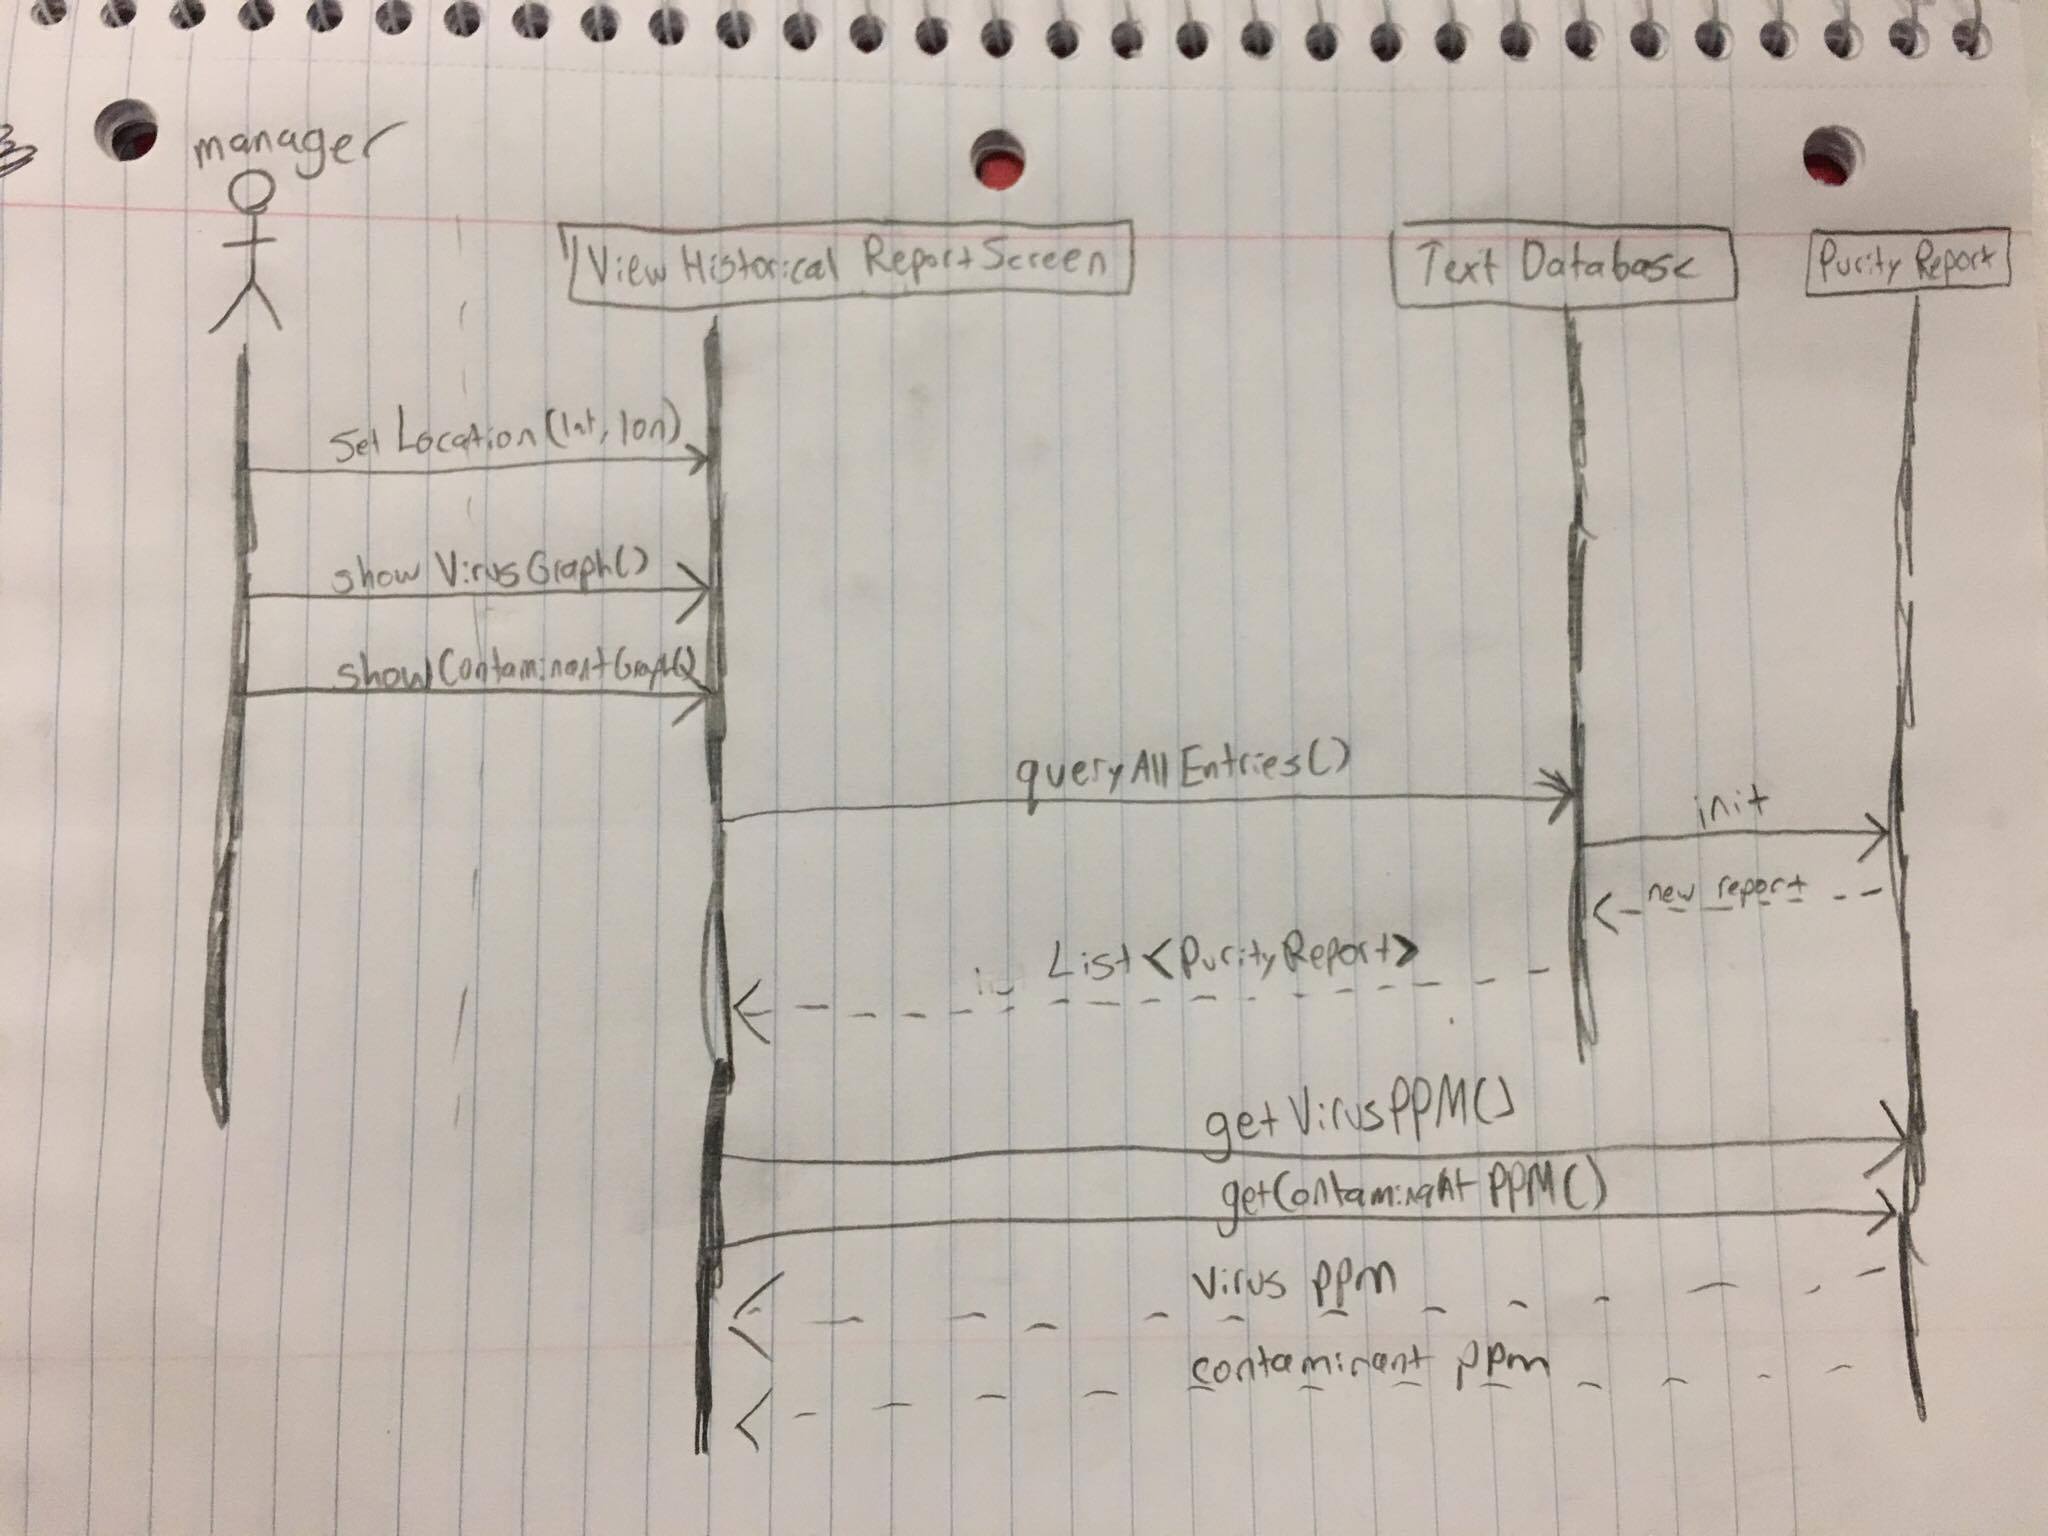 manager
View Historical Report Screen
Text Database
Purity Report
Set Location (lat, lon)
show Virus Graph()
show Contaminant Graph()
query All Entries()
init
new report
List <Purity Report>
get Virus PPM()
get Contaminant PPM()
Virus ppm
contaminant ppm